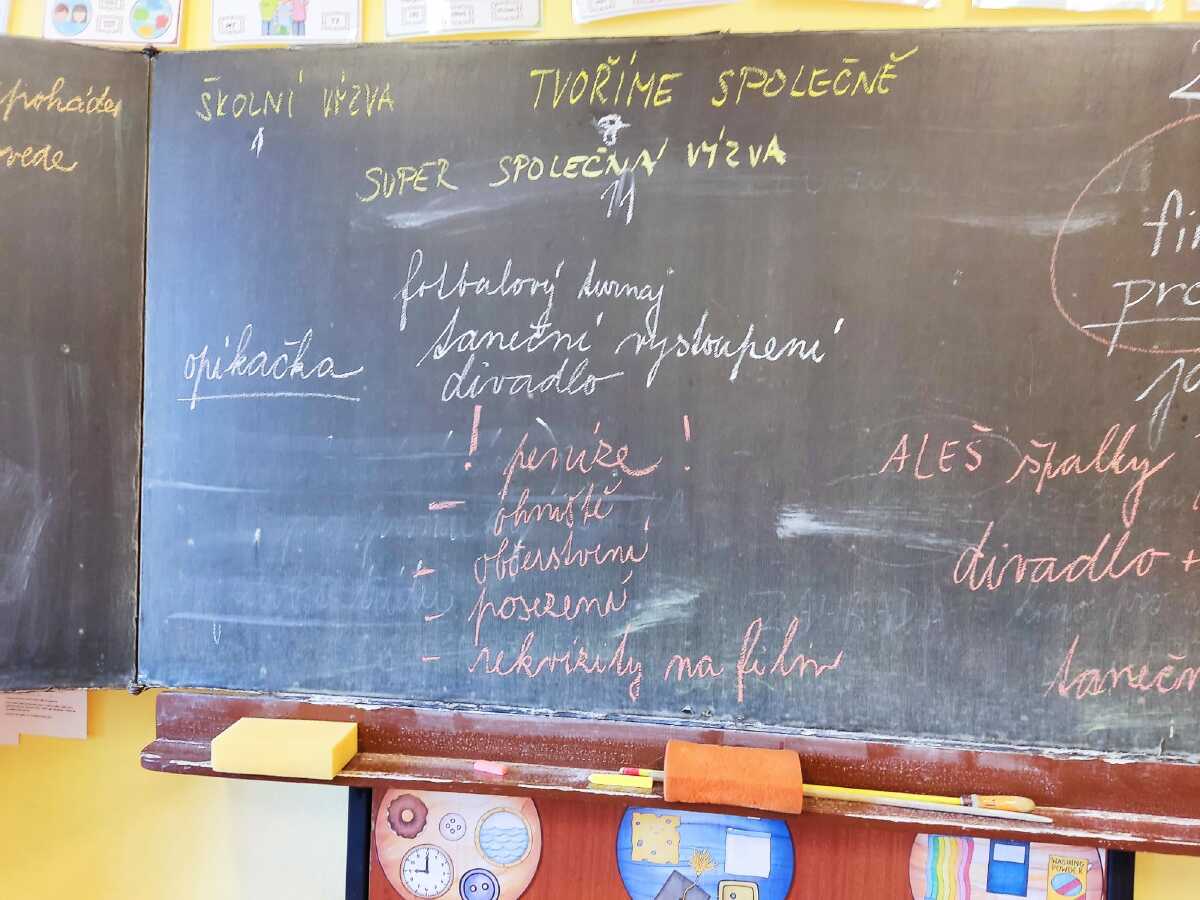 ŠKOLNÍ VÝZVA
1
TVOŘÍME SPOLEČNĚ
SUPER SPOLEČNÁ VÝZVA
11
pohádes
vede
fotbalový turnaj
taneční vystoupení
divadlo
opíkačka
! peníze !
- ohniště
- občerstvení
- posezení
- rekvizity na film
2
fin
pro
ja
ALEŠ špalky
divadlo +
tanečn
WASHING
POWDER